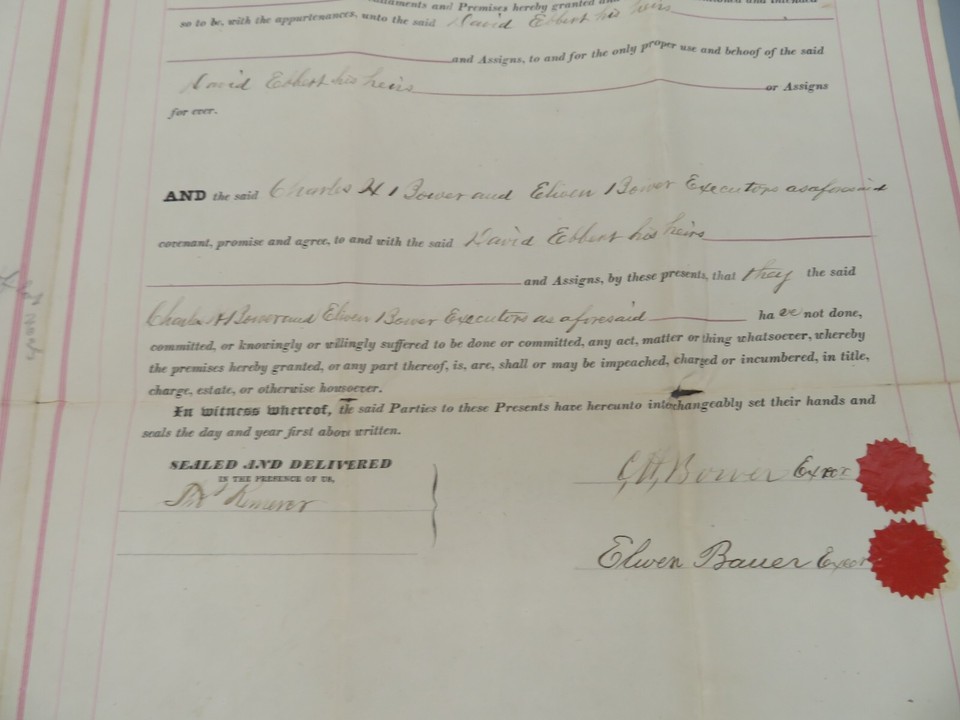 and Premises hereby granted and
so to be, with the appurtenances, unto the said David Ebbert his heirs
and Assigns, to and for the only proper use and behoof of the said
David Ebbert his heirs or Assigns
for ever.
AND the said Charles H Bower and Elwen Bower Executors as aforesaid
covenant, promise and agree, to and with the said David Ebbert his heirs
and Assigns, by these presents, that they the said
Charles H Bower and Elwen Bower Executors as aforesaid have not done,
committed, or knowingly or willingly suffered to be done or committed, any act, matter or thing whatsoever, whereby
the premises hereby granted, or any part thereof, is, are, shall or may be impeached, charged or incumbered, in title,
charge, estate, or otherwise howsoever.
In witness whereof, the said Parties to these Presents have hereunto interchangeably set their hands and
seals the day and year first above written.
SEALED AND DELIVERED
IN THE PRESENCE OF US,
C. H. Bower Exor
Elwen Bauer Exor